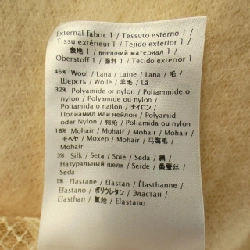 External fabric 1 / Tessuto esterno 1 /
Tissu extérieur 1 / Tejido exterior 1 /
裏地 1 /
Oberstoff 1 / 面料 1 / Tecido exterior 1
Wool / Lana / Laine / Lana / 毛 /
Шерсть / Wolle / 羊毛 / Lã
Polyamide or nylon / Poliammide o
nylon / Polyamide ou nylon /
Poliamida o nylon / ナイロン /
Полиамид или нейлон / Polyamid
oder Nylon / Poliamida ou nylon
Mohair / Mohair / Mohair / Mohair /
モヘヤ / Мохер / Mohair / 马海毛 /
Mohair
Silk / Seta / Soie / Seda / 絹 /
Натуральный шелк / Seide / 桑蚕丝 /
Seda
Elastane / Elastan / Élasthanne /
Elastano / ポリウレタン / Эластан /
Elasthan / 氨纶 / Elastano